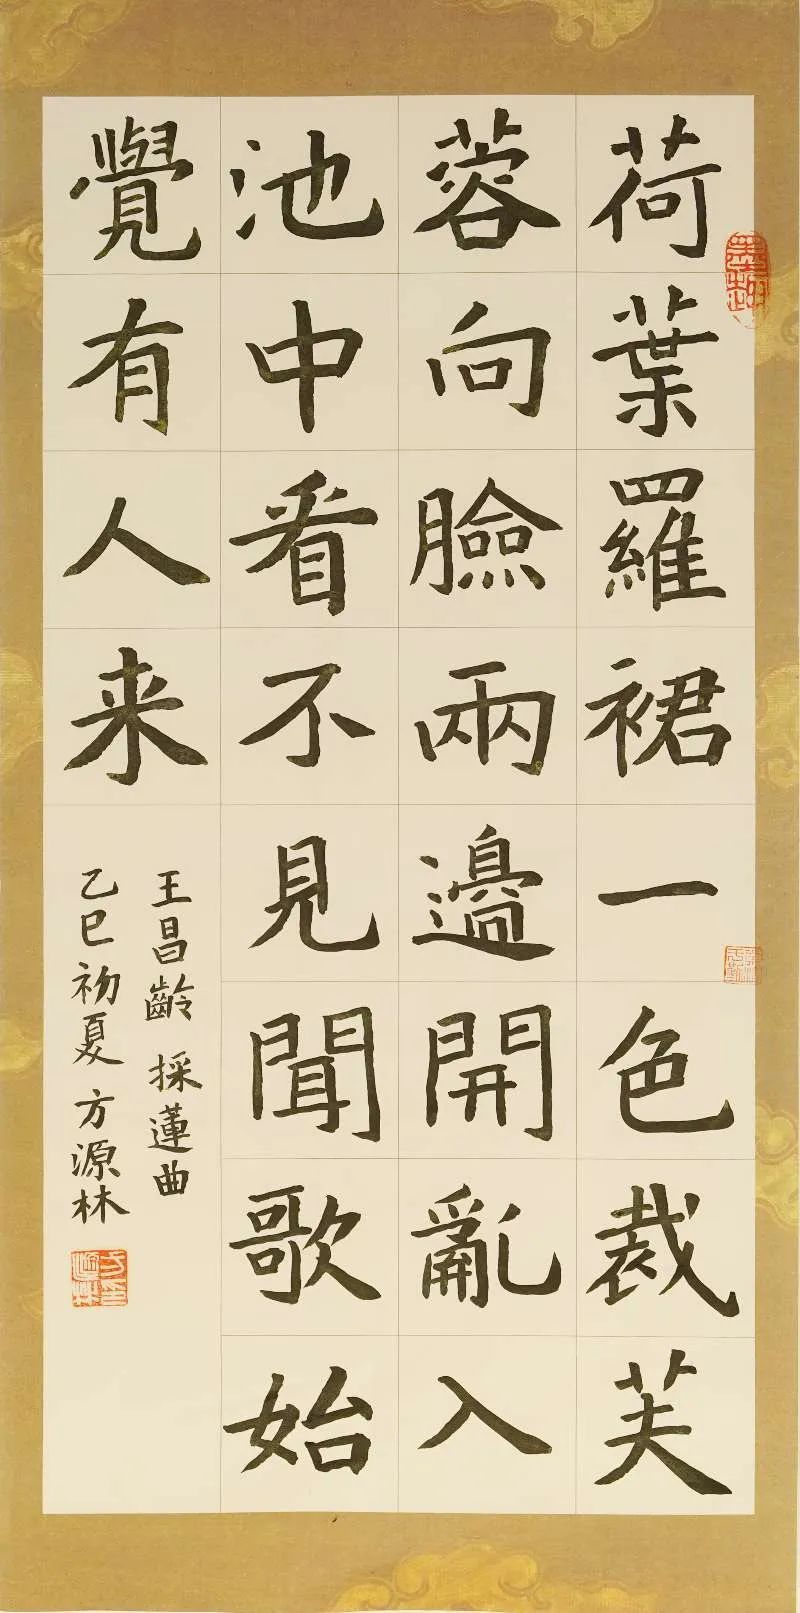 荷葉羅裙一色裁芙
蓉向臉兩邊開亂入
池中看不見聞歌始
覺有人来
王昌齡 採蓮曲
乙巳初夏 方源林